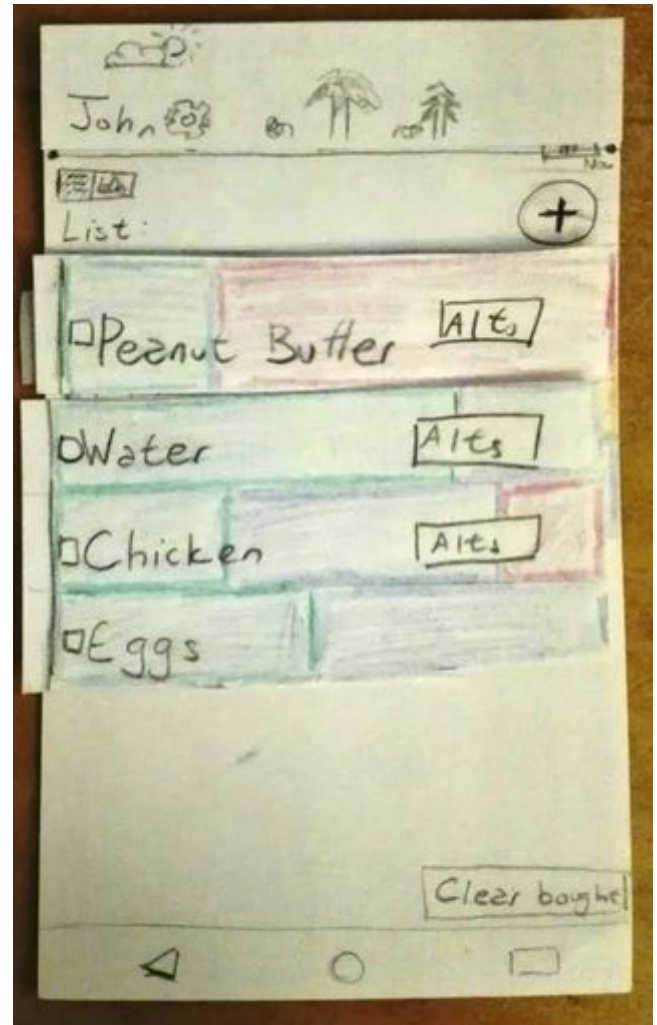 John
List:
+
Peanut Butter Alts
Water Alts
Chicken Alts
Eggs
Clear bought